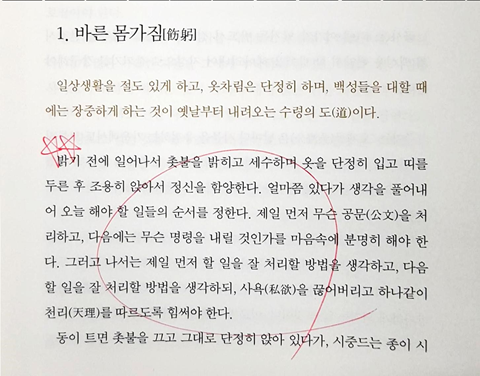 1. 바른 몸가짐[飭躬]
일상생활을 절도 있게 하고, 옷차림은 단정히 하며, 백성들을 대할 때
에는 장중하게 하는 것이 옛날부터 내려오는 수령의 도(道)이다.
밝기 전에 일어나서 촛불을 밝히고 세수하며 옷을 단정히 입고 띠를
두른 후 조용히 앉아서 정신을 함양한다. 얼마쯤 있다가 생각을 풀어내
어 오늘 해야 할 일들의 순서를 정한다. 제일 먼저 무슨 공문(公文)을 처
리하고, 다음에는 무슨 명령을 내릴 것인가를 마음속에 분명히 해야 한
다. 그러고 나서는 제일 먼저 할 일을 잘 처리할 방법을 생각하고, 다음
할 일을 잘 처리할 방법을 생각하되, 사욕(私欲)을 끊어버리고 하나같이
천리(天理)를 따르도록 힘써야 한다.
동이 트면 촛불을 끄고 그대로 단정히 앉아 있다가, 시중드는 종이 시